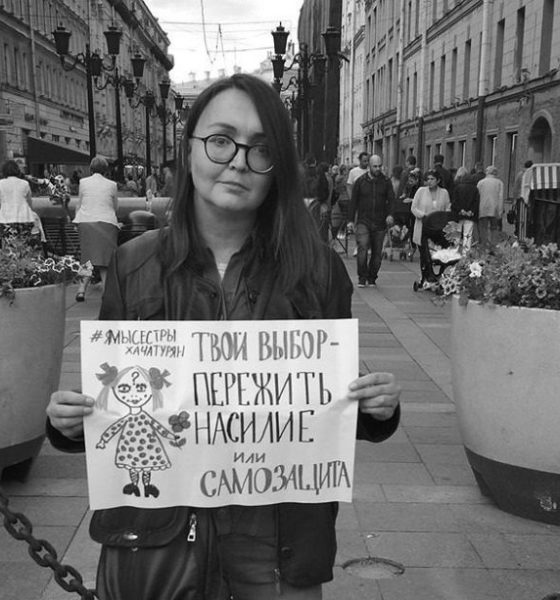 #ЯМЫСЕСТРЫ
ХАЧАТУРЯН
ТВОЙ ВЫБОР-
ПЕРЕЖИТЬ
НАСИЛИЕ
ИЛИ
САМОЗАЩИТА
?